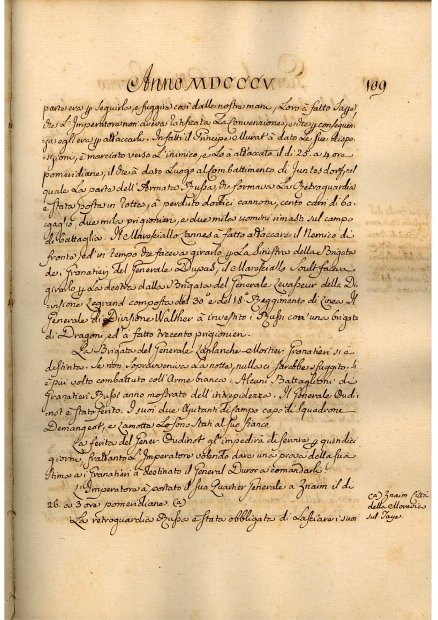 Anno MDCCCV
109
parte era p seguirlo, e fuggire così dalle nostre mani, Loro à fatto sapere
che l'Imperatore non aveva ratificata La Convenzione, e che p conseguen-
za egli era p attaccarlo. Infatti il Principe Murat à dato le sue dispo-
sizioni, è marciato verso l'inimico, e Lo à attaccato il dì 25. a 4 ore
pomeridiane, il che à dato Luogo al Combattimento di Juntesdorff, nel
quale La parte dell'Armata Russa, che formava La Retroguardia
è stata posta in rotta, à perduto dodici cannoni, cento carri di ba-
gaglio due mila prigionieri, e due mila uomini rimasti sul campo
di battaglia. Il Maresciallo Lannes à fatto attaccare il Nemico di
fronte, ed in tempo che faceva girarlo p La Sinistra dalla Brigata
dei Granatieri del Generale Dupas, il Maresciallo Soult faceva
girarlo p La destra dalla Brigata del Generale Levasseur della Di-
visione Legrand composta del 3o e del 18o Reggimento di Linea. Il
Generale di Divisione Walther à investito i Russi con una brigata
di Dragoni, ed à fatto trecento prigionieri.
La Brigata del Generale Laplanche-Mortier Granatieri si è
distinta. Se non sopravveniva La notte, nulla ci sarebbe sfuggito. Si
è più volte combattuto coll'Arme bianca. Alcuni Battaglioni di
Granatieri Russi anno mostrato dell'intrepidezza. Il Generale Oudi-
not è stato ferito. I suoi due Ajutanti di campo capi di Squadrone
Demangeot, e Lamotte Lo sono stati al suo fianco
La ferita del Gener. Oudinot gl'impedirà di servire p quindici
giorni, frattanto L'Imperatore volendo dare una prova della sua
stima a' Granatieri à destinato il General Duroc a comandarli.
L'Imperatore à portato il suo Quartier Generale a Znaim il dì
26. a 3 ore pomeridiane (a)
La retroguardia Russa è stata obbligata di Lasciare i suoi
(a) Znaim Città
della Moravia
sul Taye.